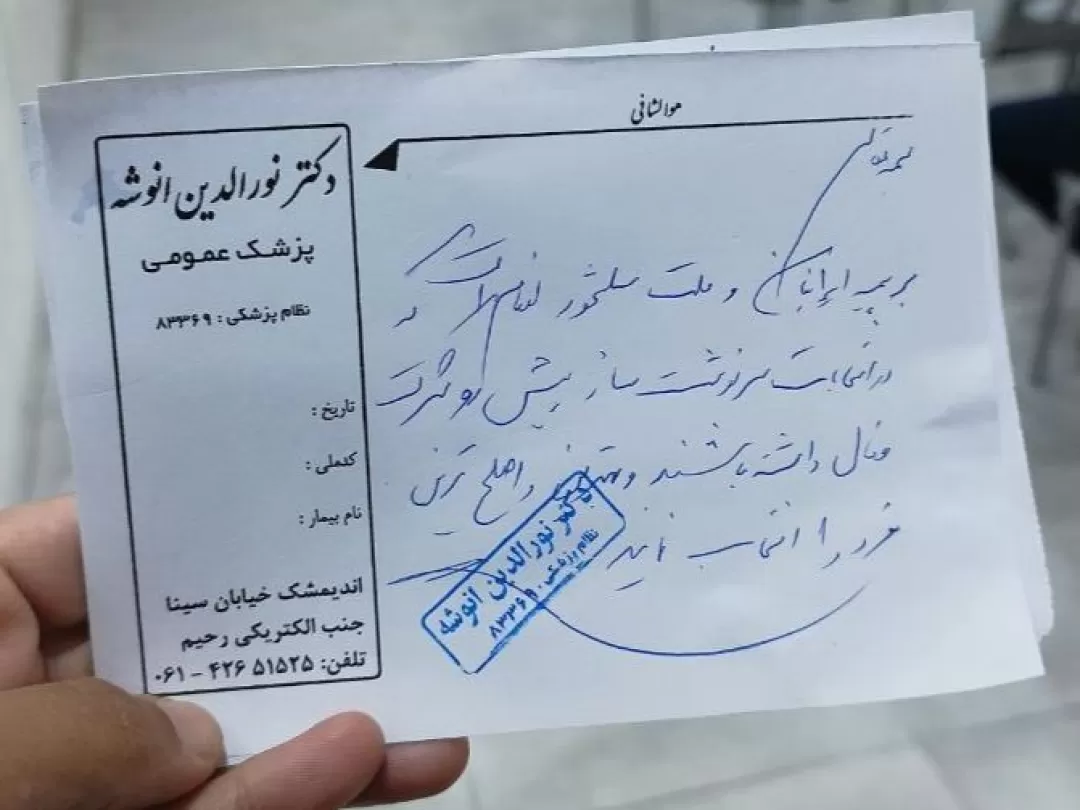 هوالشافی
دکتر نورالدین انوشه
پزشک عمومی
نظام پزشکی : ۸۳۳۶۹
تاریخ :
کدملی :
نام بیمار :
اندیمشک خیابان سینا
جنب الکتریکی رحیم
تلفن: ۴۲۶۵۱۵۲۵ - ۰۶۱
بسمه تعالی
بر همه ایرانیان و ملت سلحشور لازم است که در
در انتخابات سرنوشت ساز پیش رو شرکت
فعال داشته باشند و بهترین و اصلح ترین
فرد را انتخاب نمایند
دکتر نورالدین انوشه
نظام پزشکی: ۸۳۳۶۹